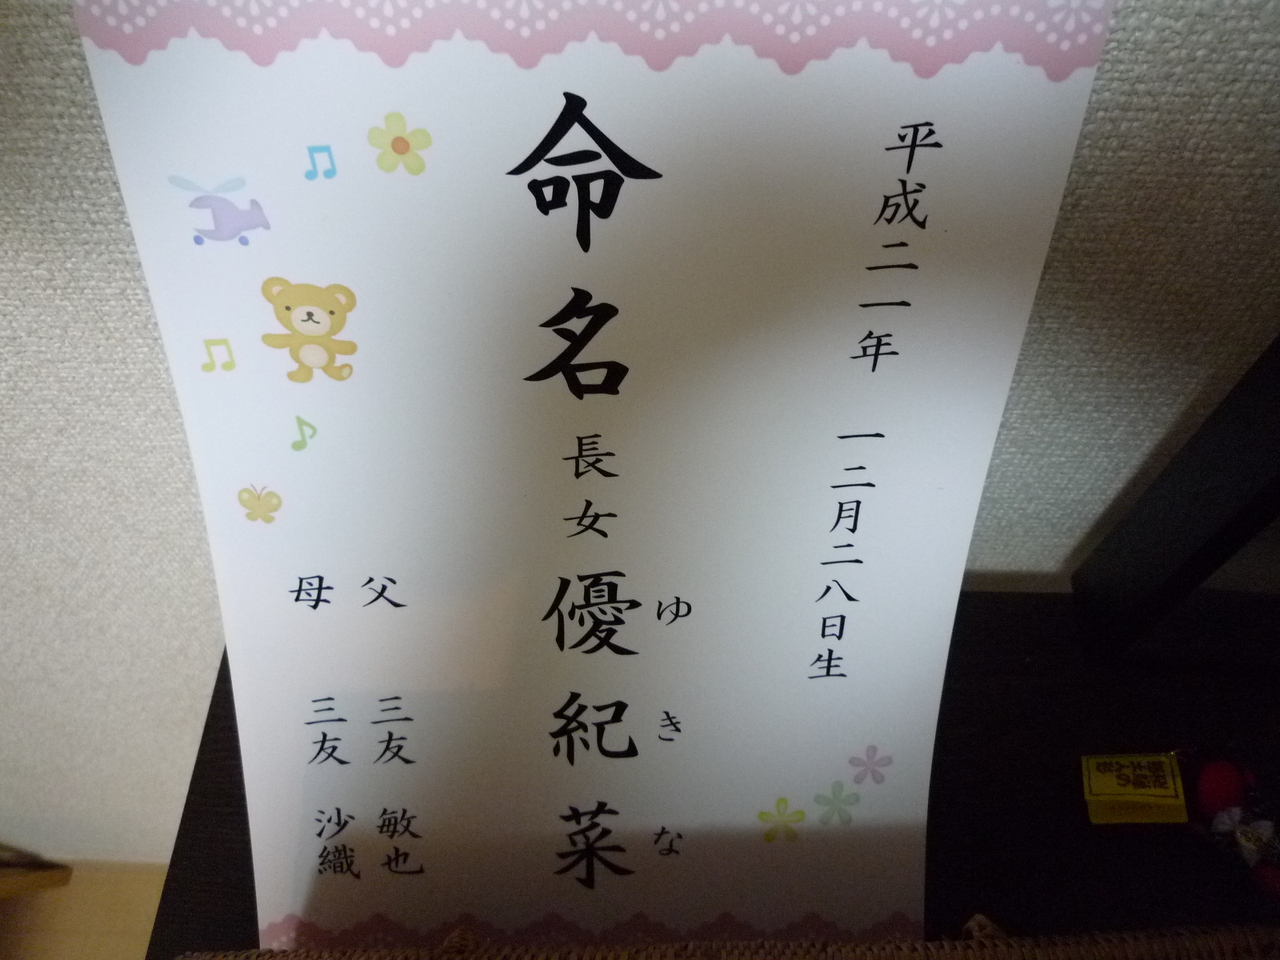 平成二一年 一二月二八日生
命名 長女 優紀菜
ゆきな
父 三友 敏也
母 三友 沙織